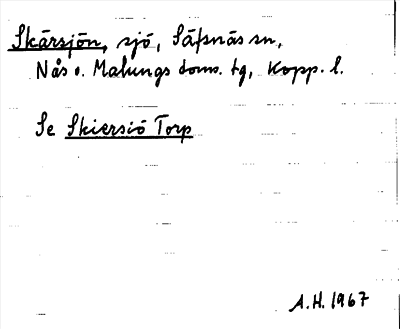 Skärsjön, sjö, Säfsnäs sn,
Nås o. Malungs doms. tg, Kopp. l.
Se Skiersiö Torp
A.H. 1967